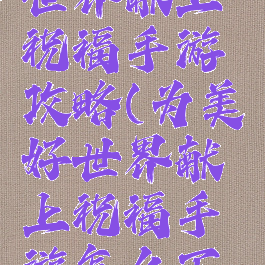 世界献上
税福手游
攻略(为美
好世界献
上税福手
游怎么下